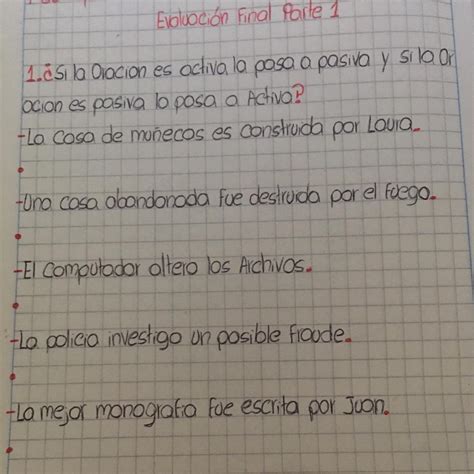 Evaluación Final Parte 1
1.¿Si la Oracion es activa la pasa a pasiva y si la Or
acion es pasiva lo pasa a Activa?
-La casa de muñecos es construida por Laura.
-Una casa abandonada fue destruida por el fuego.
-El computador altero los Archivos.
-La policia investigo un posible fraude.
-La mejor monografia fue escrita por Juan.